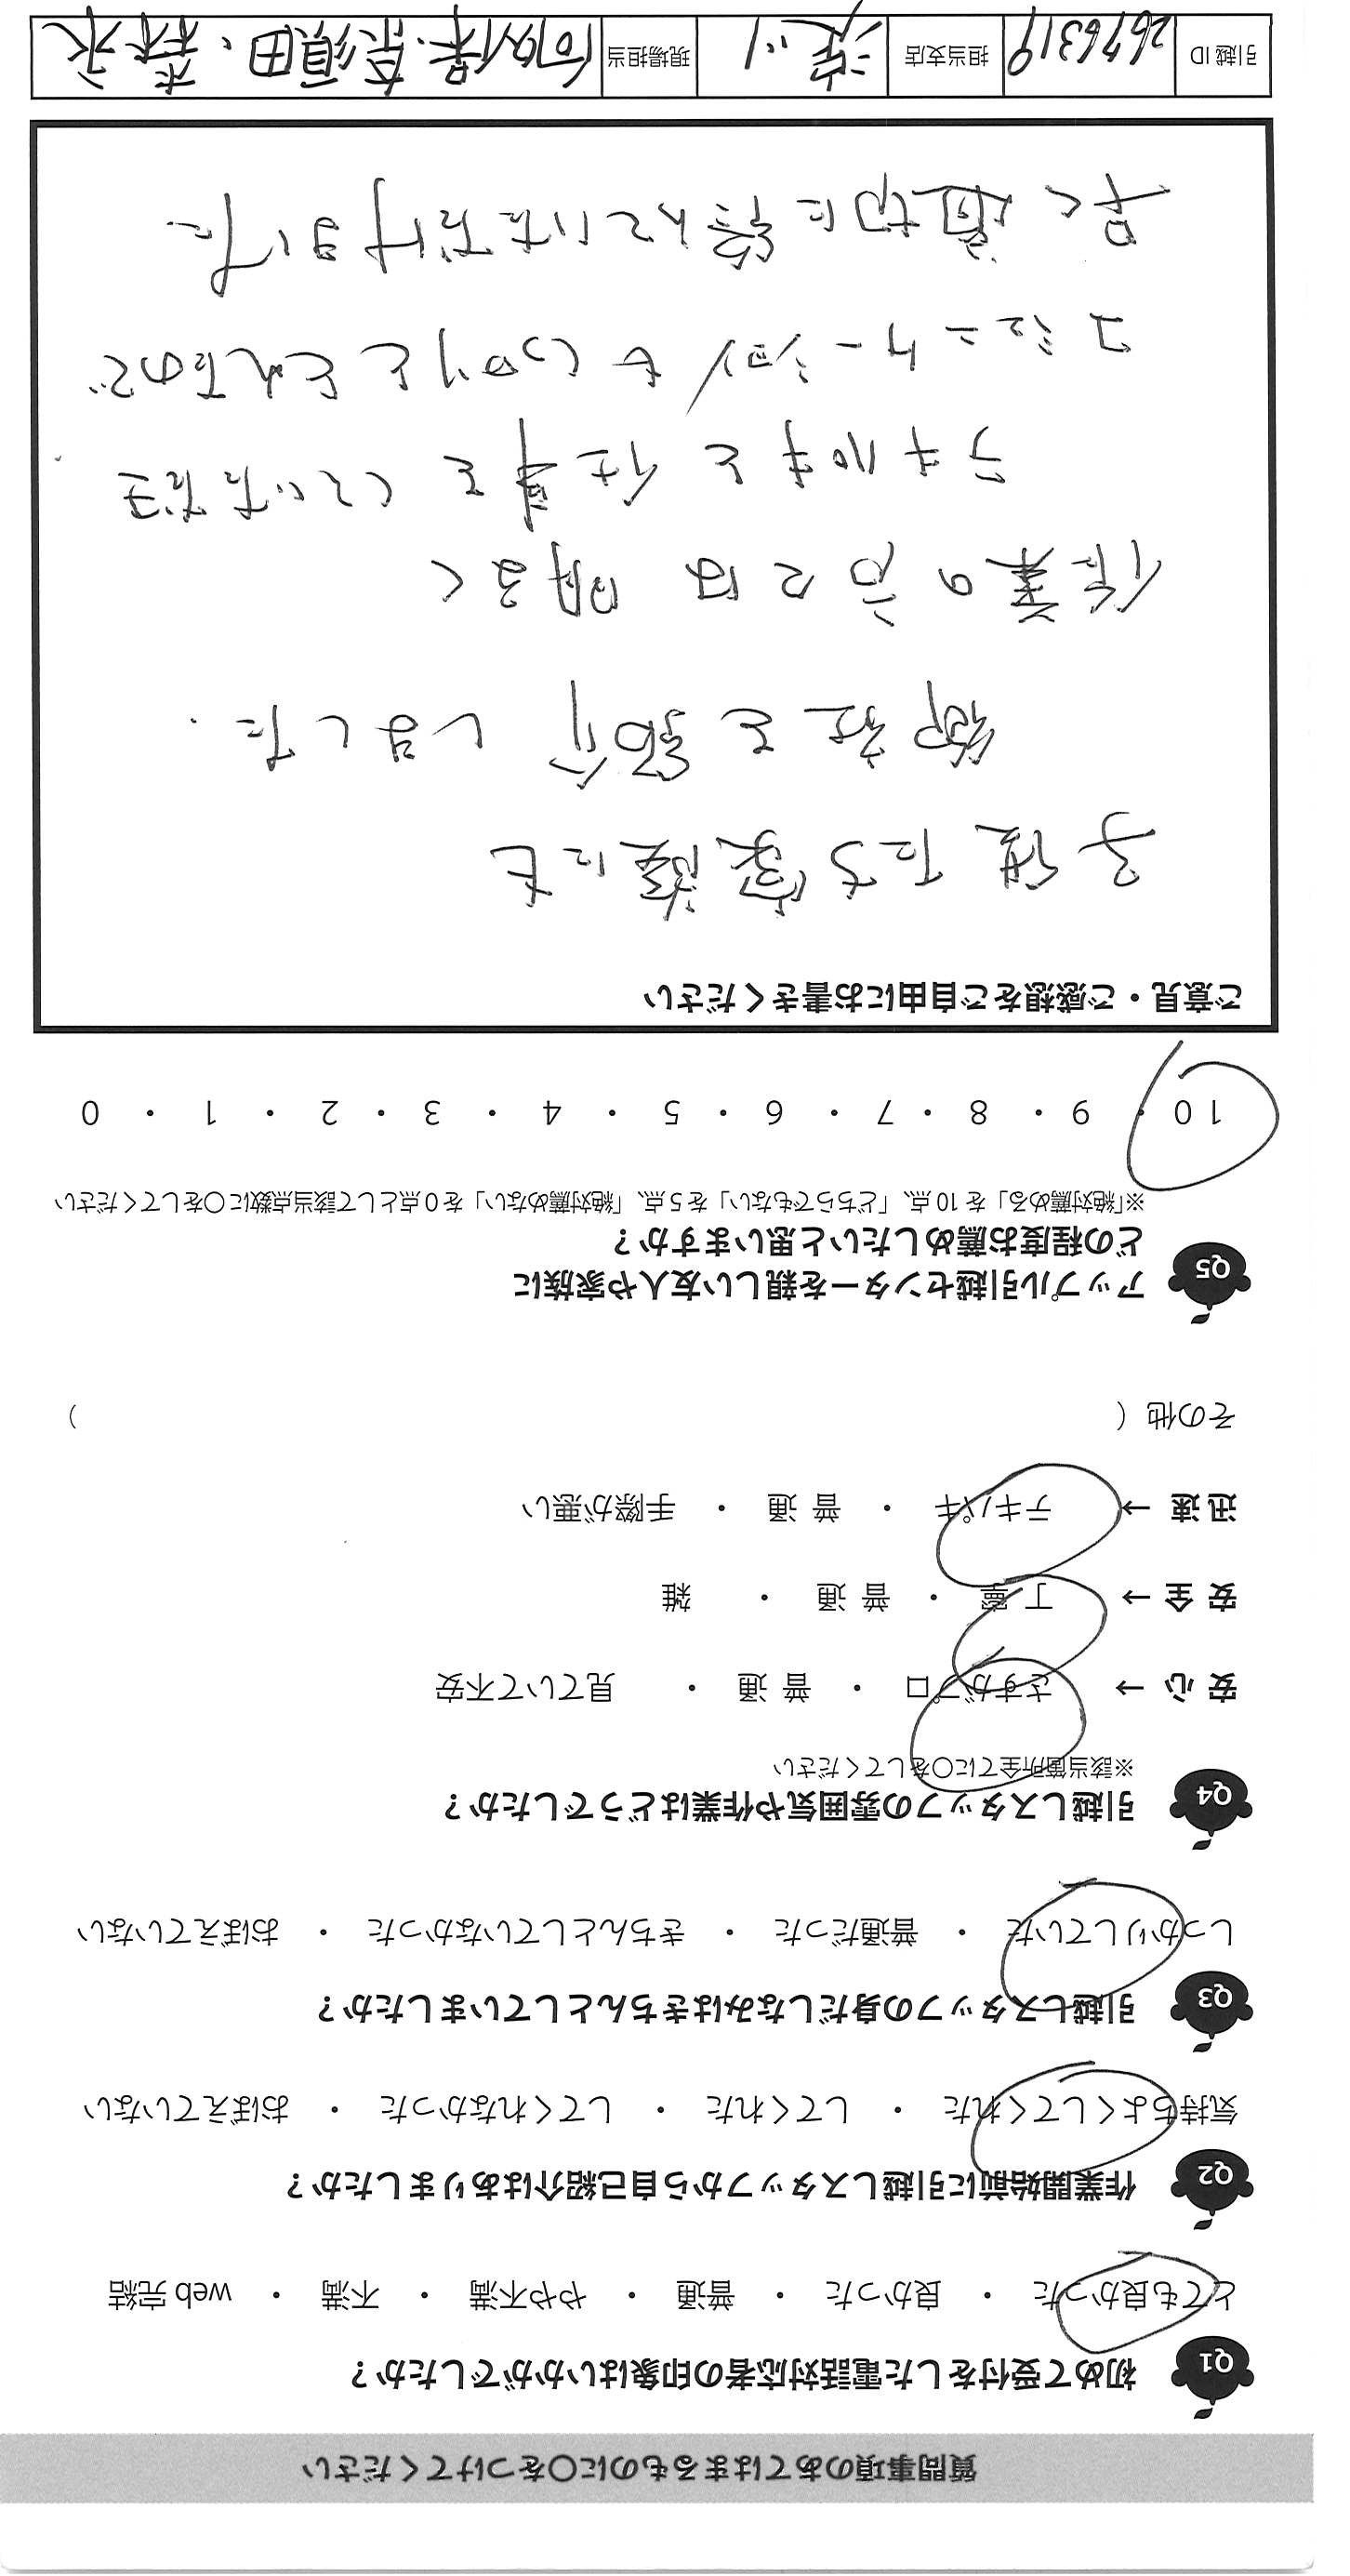 質問事項のあてはまるものに○をつけてください
Q1 初めて受付をした電話対応者の印象はいかがでしたか？
とても良かった ・ 良かった ・ 普通 ・ やや不満 ・ 不満 ・ web 完結
Q2 作業開始前に引越しスタッフから自己紹介はありましたか？
気持ちよくしてくれた ・ してくれた ・ してくれなかった ・ おぼえていない
Q3 引越しスタッフの身だしなみはきちんとしていましたか？
しっかりしていた ・ 普通だった ・ きちんとしていなかった ・ おぼえていない
Q4 引越しスタッフの雰囲気や作業はどうでしたか？
※該当箇所全てに○をしてください
安 心 → さすがプロ ・ 普 通 ・ 見ていて不安
安 全 → 丁 寧 ・ 普 通 ・ 雑
迅 速 → テキパキ ・ 普 通 ・ 手際が悪い
その他（ ）
Q5 アップル引越センターを親しい友人や家族に
どの程度お薦めしたいと思いますか？
※「絶対薦める」を 10 点、「どちらでもない」を 5 点、「絶対薦めない」を 0 点として該当点数に○をしてください
10 ・ 9 ・ 8 ・ 7 ・ 6 ・ 5 ・ 4 ・ 3 ・ 2 ・ 1 ・ 0
ご意見・ご感想をご自由にお書きください
子供たち家族にも
御社を紹介しました.
作業の方々は明るく
テキパキと仕事をしていただき
コミュニケーションもしっかりととれたので
早く適切に終えていただけました
引越 ID 2676319 担当支店 淀川 現場担当 奈須田、森永